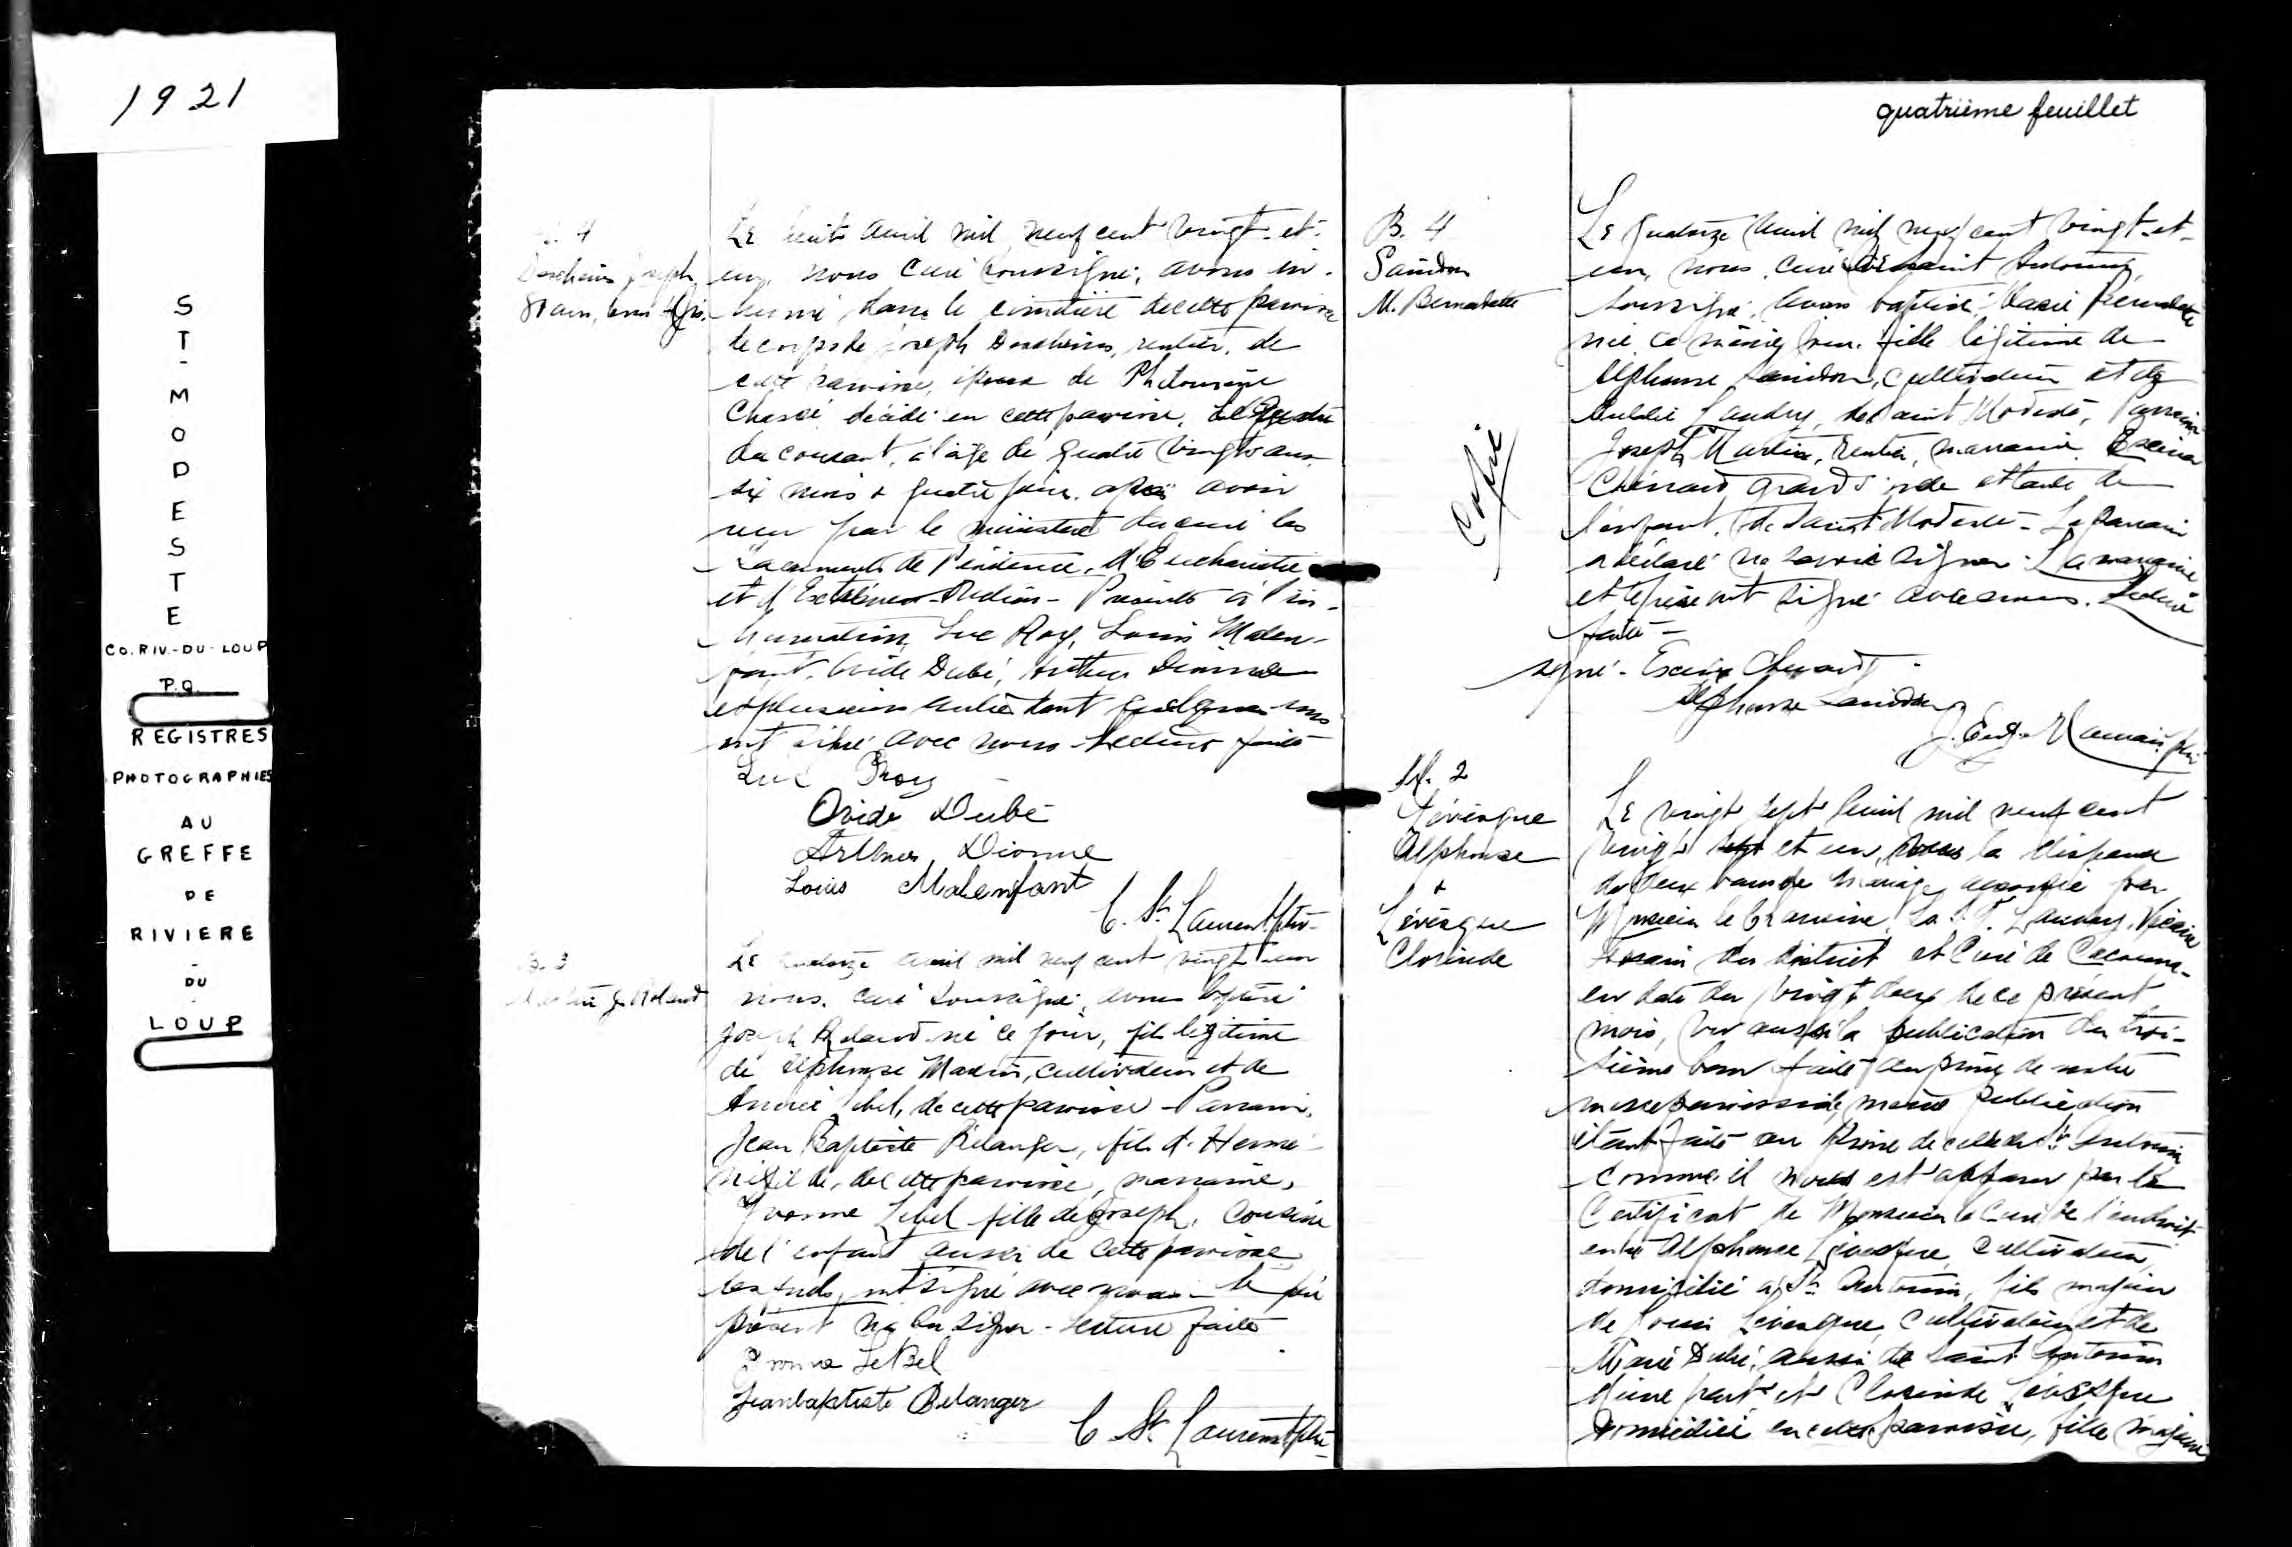 1921
ST-MODESTE
CO. RIV.-DU-LOUP
P.Q.
REGISTRES
PHOTOGRAPHIES
AU
GREFFE
DE
RIVIERE
-
DU
-
LOUP
4
Joseph
80 ans, 6 mois
Le huit avril mil neuf cent vingt-et-
un, nous curé soussigné, avons in-
humé dans le cimetière de cette paroisse
le corps de Joseph Deschênes, rentier, de
cette paroisse, époux de Philomène
décédé en cette paroisse, le quatre
du courant, à l'âge de quatre vingts ans
six mois & quatre jours, après avoir
reçu par le ministère du curé les
Sacrements de Pénitence, d'Eucharistie
et d'Extrême-Onction - Présents à l'in-
humation, Luc Roy, Louis Malen-
fant, Ovide Dubé, Arthur Dionne
et plusieurs autres dont quelques-uns
ont signé avec nous - Lecture faite
Luc Roy
Ovide Dubé
Arthur Dionne
Louis Malenfant
C. St. Laurent ptre
B. 3
Martin J. Roland
Le quatorze avril mil neuf cent vingt-un
nous, curé soussigné, avons baptisé
Joseph Roland né ce jour, fils légitime
de Alphonse Martin, cultivateur et de
Lebel, de cette paroisse - Parrain,
Jean Baptiste Bélanger, fils d'Hermé-
négilde, de cette paroisse, marraine,
Yvonne Lebel fille de Joseph, cousine
de l'enfant aussi de cette paroisse
lesquels ont signé avec nous - le père
présent n'a su signer - Lecture faite
Yvonne LeBel
Jeanbaptiste Belanger
C. St. Laurent ptre
quatrième feuillet
B. 4
Saindon
M. Bernadette
Copie
Le quatorze avril mil neuf cent vingt-et-
un, nous, curé de Saint Antonin,
soussigné, avons baptisé Marie Bernadette
née ce même jour, fille légitime de
Alphonse Saindon, cultivateur et de
Landry, de Saint Modeste, Parrain
Joseph Martin, rentier, marraine
Chénard, grands oncle et tante de
l'enfant, de Saint Modeste - Le parrain
a déclaré ne savoir signer - La marraine
et le père ont signé avec nous. Lecture
faite -
signé - Chenard
Alphonse Saindon
J. Eug. ptre
M. 2
Lévesque
Alphonse
&
Lévesque
Clorinde
Le vingt sept avril mil neuf cent
vingt et un, vu la dispense
de deux bans de mariage accordée par
Monsieur le Vicaire
Forain du district et Curé de Cacouna
en date du vingt deux de ce présent
mois, vu aussi la publication du troi-
sième ban faite au prône de notre
messe paroissiale, même publication
étant faite au Prône de celle de St Antonin
comme il nous est apparu par le
Certificat de Monsieur le Curé de l'endroit
entre Alphonse Lévesque, cultivateur,
domicilié à St. Antonin, fils majeur
de Louis Lévesque, cultivateur et de
Marie Dubé, aussi de Saint Antonin
d'une part, et Clorinde Lévesque
domiciliée en cette paroisse, fille majeure